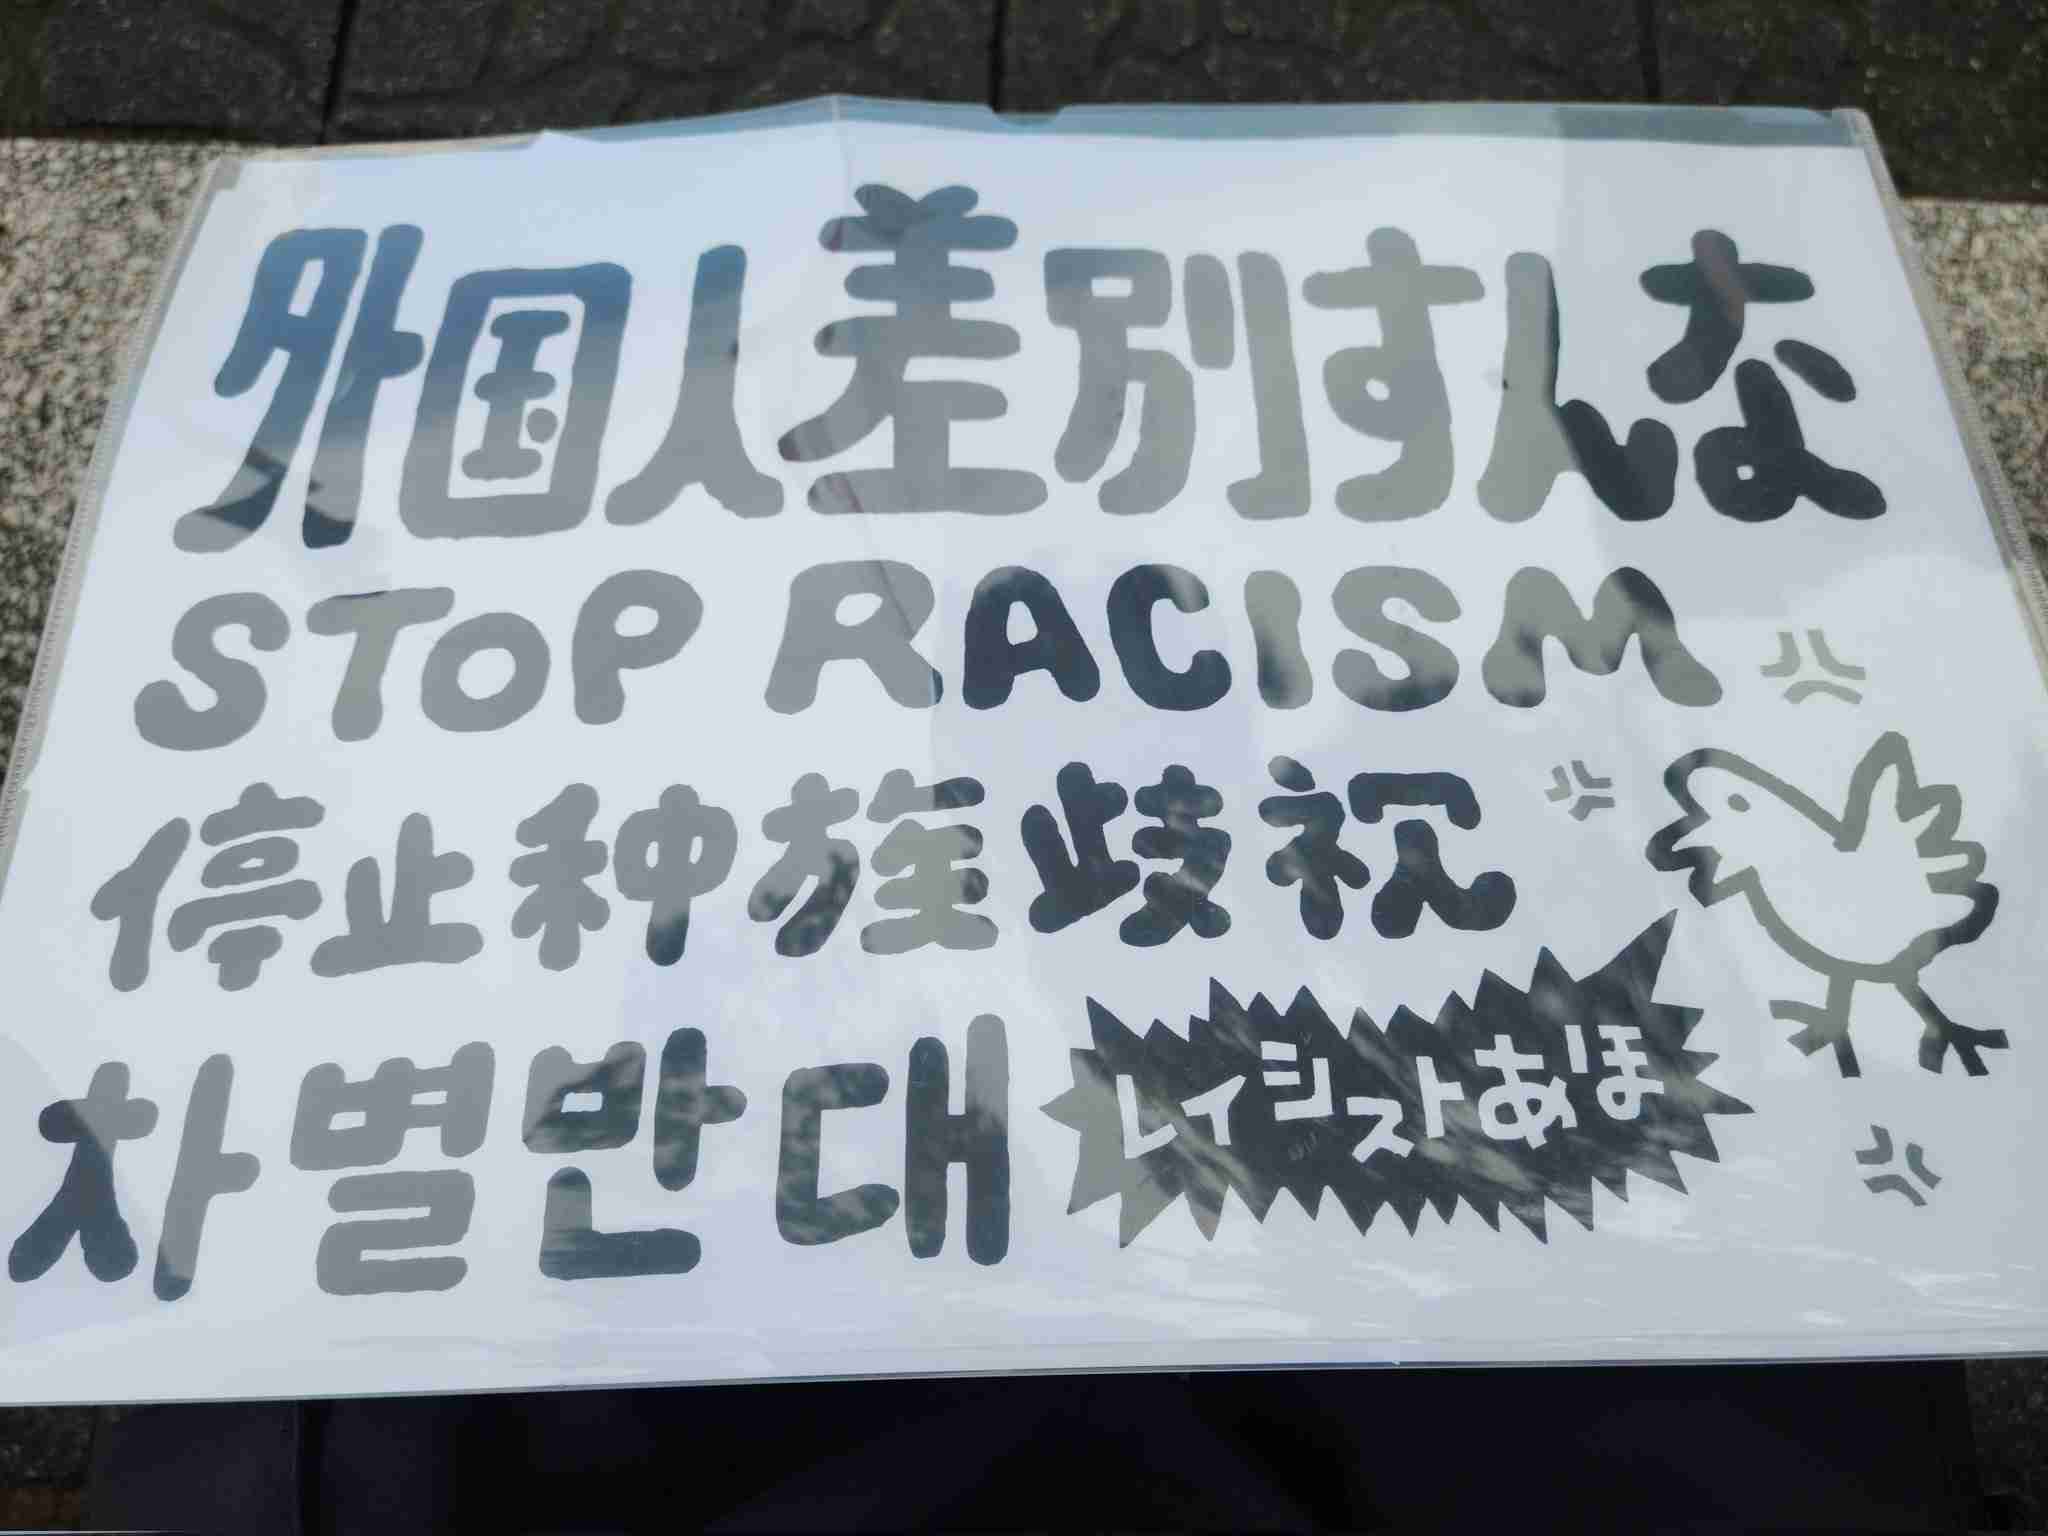 外国人差別すんな
STOP RACISM
停止种族歧视
차별반대
レイシストあほ